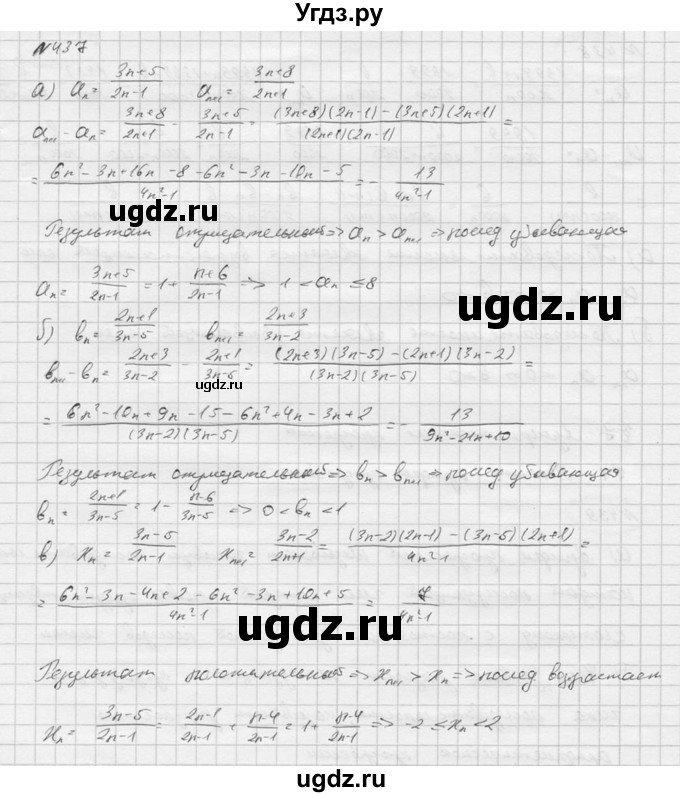 Угдз.ру
№437
а) aₙ = (3n+5)/(2n-1)   aₙ₊₁ = (3n+8)/(2n+1)
aₙ₊₁ - aₙ = (3n+8)/(2n+1) - (3n+5)/(2n-1) = ((3n+8)(2n-1) - (3n+5)(2n+1))/((2n+1)(2n-1)) =
= (6n² - 3n + 16n - 8 - 6n² - 3n - 10n - 5)/(4n²-1) = - 13/(4n²-1)
Результат отрицательный => aₙ > aₙ₊₁ => послед убывающая
aₙ = (3n+5)/(2n-1) = 1 + (n+6)/(2n-1) => 1 < aₙ ≤ 8
б) bₙ = (2n+1)/(3n-5)   bₙ₊₁ = (2n+3)/(3n-2)
bₙ₊₁ - bₙ = (2n+3)/(3n-2) - (2n+1)/(3n-5) = ((2n+3)(3n-5) - (2n+1)(3n-2))/((3n-2)(3n-5)) =
= (6n² - 10n + 9n - 15 - 6n² + 4n - 3n + 2)/((3n-2)(3n-5)) = - 13/(9n²-21n+10)
Результат отрицательный => bₙ > bₙ₊₁ => послед убывающая
bₙ = (2n+1)/(3n-5) = 1 - (n-6)/(3n-5) => 0 < bₙ < 1
в) xₙ = (3n-5)/(2n-1)   xₙ₊₁ = (3n-2)/(2n+1) = ((3n-2)(2n-1) - (3n-5)(2n+1))/(4n²-1) =
= (6n² - 3n - 4n + 2 - 6n² - 3n + 10n + 5)/(4n²-1) = 7/(4n²-1)
Результат положительный => xₙ₊₁ > xₙ => послед возрастает
xₙ = (3n-5)/(2n-1) = (2n-1)/(2n-1) + (n-4)/(2n-1) = 1 + (n-4)/(2n-1) => -2 ≤ xₙ < 2
ugdz.ru
ugdz.ru
ugdz.ru
ugdz.ru
ugdz.ru
ugdz.ru
ugdz.ru